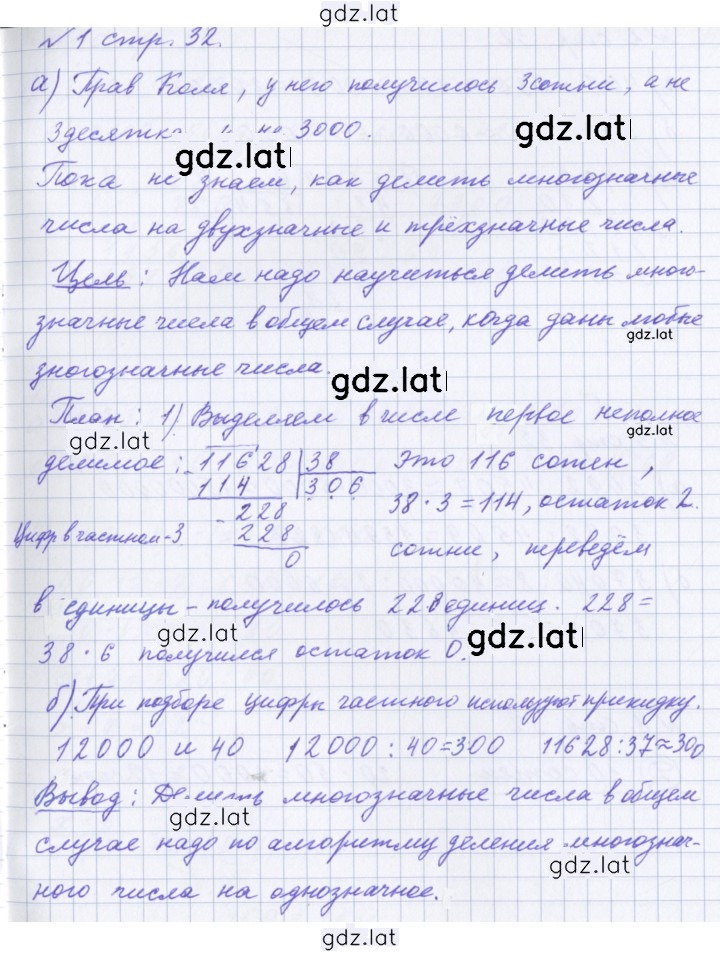 gdz.lat
№1 стр. 32.
а) Прав Коля, у него получилось 3 сотни, а не
3 десятка и не 3000.
gdz.lat
gdz.lat
Пока не знаем, как делить многозначные
числа на двухзначные и трёхзначные числа.
Цель: Нам надо научиться делить много-
значные числа в общем случае, когда даны любые
gdz.lat
зногозначные числа.
gdz.lat
План: 1) Выделяем в числе первое неполное
gdz.lat
gdz.lat
делимое: 11628 38 Это 116 сотен,
114 306 38·3=114, остаток 2.
- 228
Цифр в частном-3 228 сотни, переведём
0
в единицы - получилось 228 единиц. 228=
gdz.lat
38·6 получился остаток 0.
gdz.lat
б) При подборе цифры частного используют прикидку.
12000 и 40 12000:40=300 11628:37≈300
gdz.lat
Вывод: Делить многозначные числа в общем
gdz.lat
случае надо по алгоритму деления многознач-
gdz.lat
ного числа на однозначное.
gdz.lat